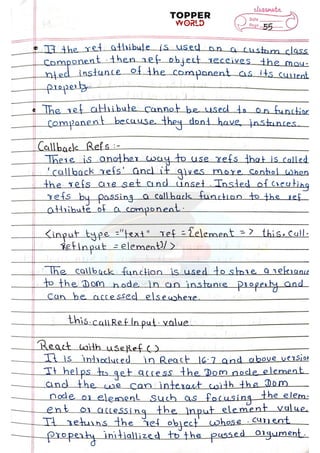 classmate
TOPPER
WORLD
Date
Page 55
• If the ref attribute is used on a custom class
Component then ref object receives the mou-
nted instance of the component as its current
property
• The ref attribute cannot be used to on function
component because they dont have instances.
Callback Refs :-
There is another way to use refs that is called
'callback refs' and it gives more control when
the refs are set and unset. Insted of creating
refs by passing a callback function to the ref
attribute of a component.
<input type ="text" ref = {element => this.call-
RefInput = element}/>
The callback function is used to store a referance
to the Dom node in an instance property and
can be accessed elsewhere.
this.callRefInput.value
React with useRef ( )
It is introduced in React 16.7 and above version
It helps to get access the Dom node element
and the we can interact with the Dom
node or element such as focusing the elem-
ent or accessing the Input element value.
It returns the ref object whose .current
property initiallized to the passed argument.